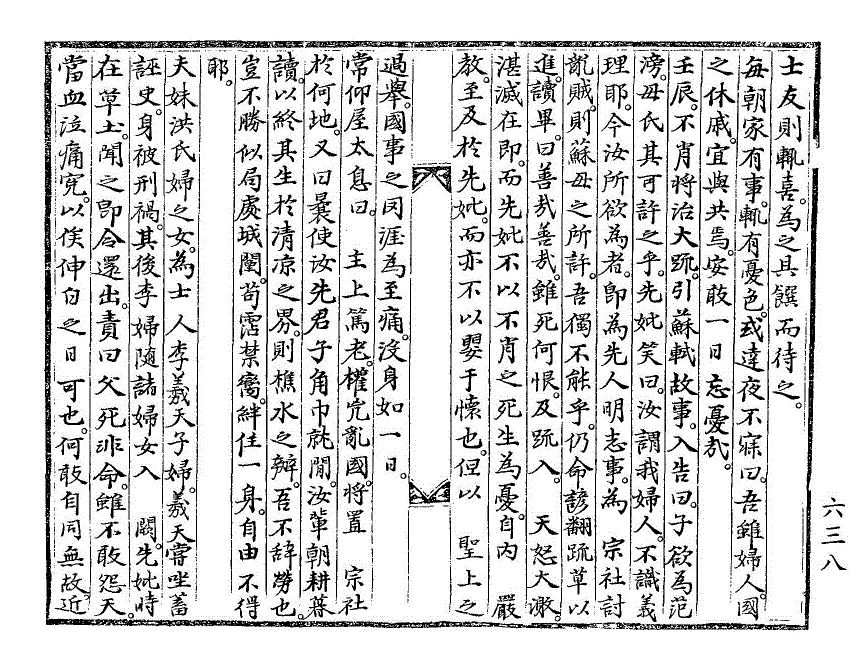 士友則輒喜。為之具饌而待之。
每朝家有事。輒有憂色。或達夜不寐曰。吾雖婦人。國
之休戚。宜與共焉。安敢一日忘憂哉。
壬辰。不肖將治大䟽。引蘇軾故事。入告曰。子欲為范
滂。母氏其可許之乎。先妣笑曰。汝謂我婦人。不識義
理耶。今汝所欲為者。卽為先人明志事。為 宗社討
亂賊。則蘇母之所許。吾獨不能乎。仍命諺翻䟽草以
進。讀畢。曰善哉善哉。雖死何恨。及䟽入。 天怒大激。
湛滅在卽。而先妣不以不肖之死生為憂。自內 嚴
教。至及於先妣。而亦不以嬰于懷也。但以 聖上之
過舉。國事之罔涯為至痛。沒身如一日。
常仰屋太息曰。 主上篤老。權兇亂國。將置 宗社
於何地。又曰曩使汝先君子角巾就閒。汝輩朝耕暮
讀。以終其生於清凉之界。則樵水之辦。吾不辭勞也。
豈不勝似局處城闉。苟霑禁臠。絆住一身。自由不得
耶。
夫妹洪氏婦之女。為士人李羲天子婦。羲天嘗坐蓄
誣史。身被刑禍。其後李婦隨諸婦女入 闕。先妣時
在草土。聞之卽令還出。責曰父死非命。雖不敢怨天。
當血泣痛寃。以俟伸白之日可也。何敢自同無故。近
六三八